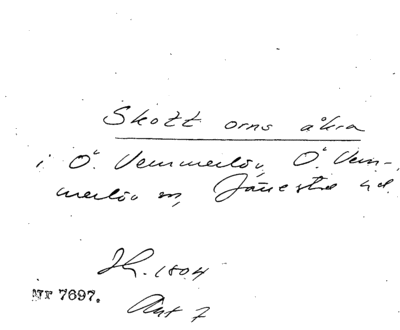 Skott orns åkra
i Ö. Vemmerlöv, Ö. Vem-
merlöv sn, Järrestad hd.
Jh. 1804
Nr 7697.
Akt 7